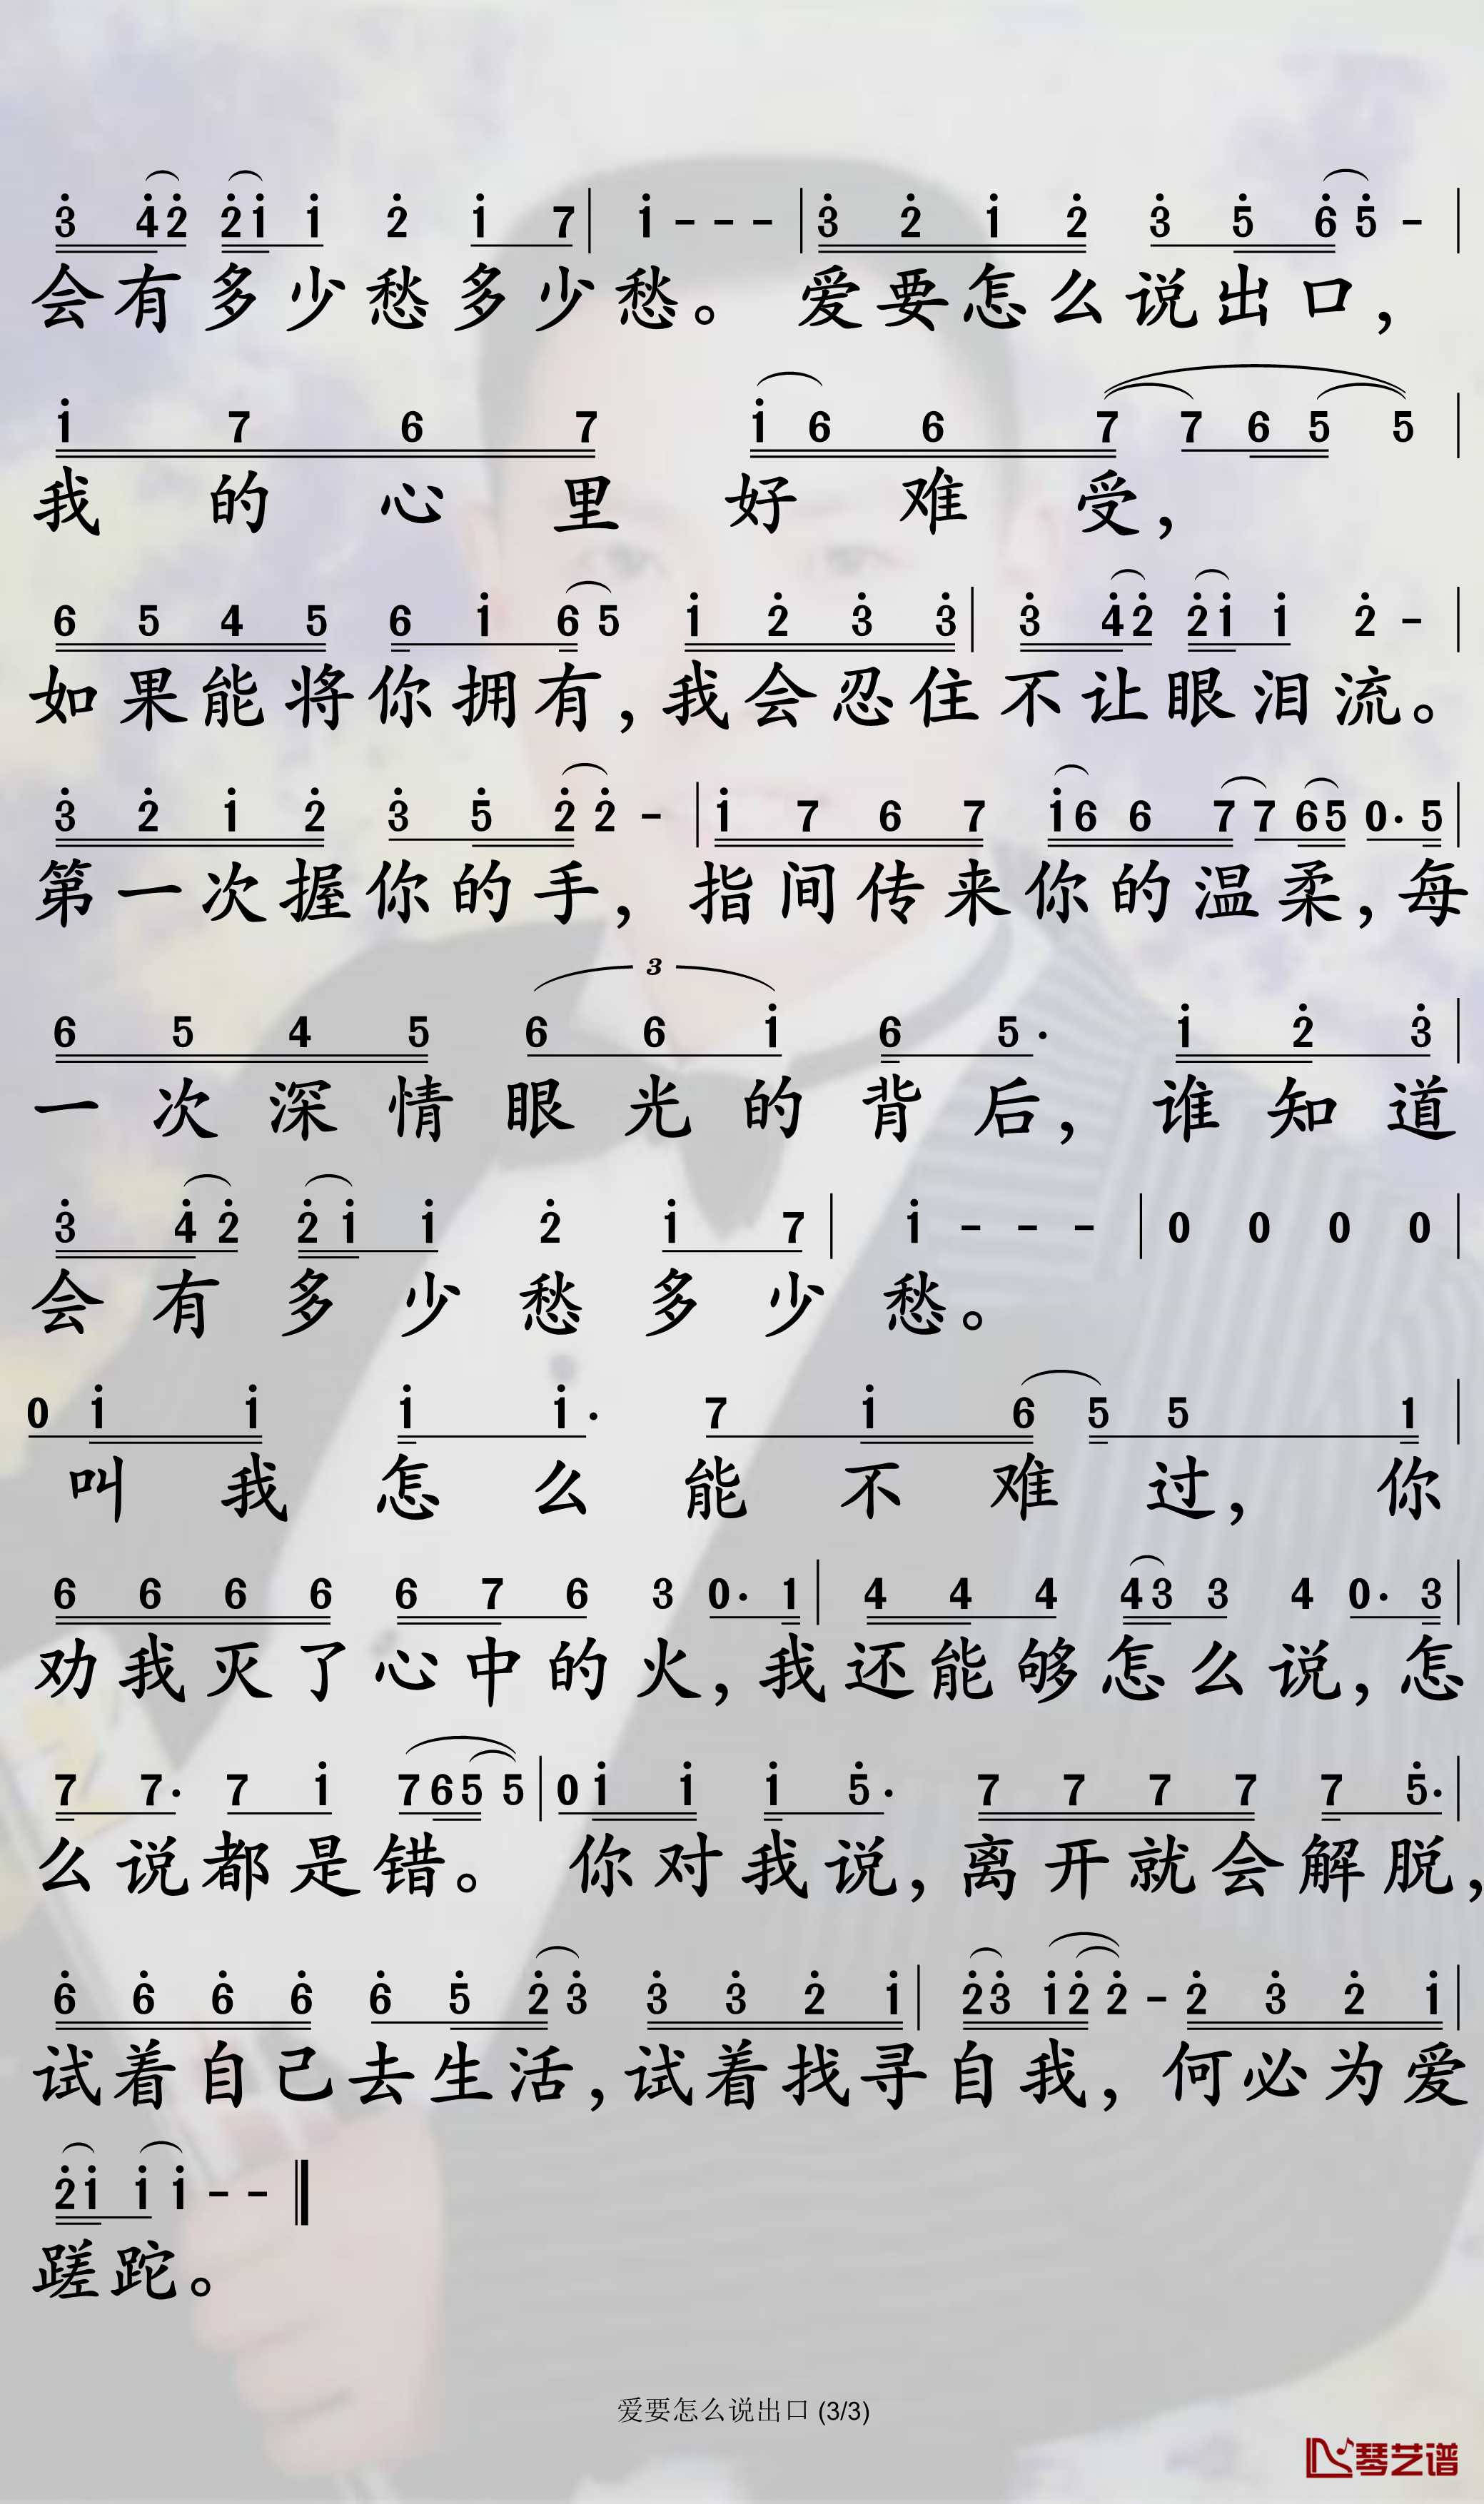 3̇ 4̇ 2̇ 2̇ 1̇ 1̇ 2̇ 1̇ 7 | 1̇ - - - | 3̇ 2̇ 1̇ 2̇ 3̇ 5̇ 6̇ 5̇ - |
会有多少愁多少愁。爱要怎么说出口，
1̇ 7 6 7 1̇ 6 6 7 7 6 5 5 |
我的心里好难受，
6 5 4 5 6 1̇ 6 5 1̇ 2̇ 3̇ 3̇ | 3̇ 4̇ 2̇ 2̇ 1̇ 1̇ 2̇ - |
如果能将你拥有，我会忍住不让眼泪流。
3̇ 2̇ 1̇ 2̇ 3̇ 5̇ 2̇ 2̇ - | 1̇ 7 6 7 1̇ 6 6 7 7 6 5 0· 5 |
第一次握你的手，指间传来你的温柔，每
3
6 5 4 5 6 6 1̇ 6 5· 1̇ 2̇ 3̇ |
一次深情眼光的背后，谁知道
3̇ 4̇ 2̇ 2̇ 1̇ 1̇ 2̇ 1̇ 7 | 1̇ - - - | 0 0 0 0 |
会有多少愁多少愁。
0 1̇ 1̇ 1̇ 1̇· 7 1̇ 6 5 5 1 |
叫我怎么能不难过，你
6 6 6 6 6 7 6 3 0· 1 | 4 4 4 4 3 3 4 0· 3 |
劝我灭了心中的火，我还能够怎么说，怎
7 7· 7 1̇ 7 6 5 5 | 0 1̇ 1̇ 1̇ 5̇· 7 7 7 7 7 5̇· |
么说都是错。你对我说，离开就会解脱，
6̇ 6̇ 6̇ 6̇ 6̇ 5̇ 2̇ 3̇ 3̇ 3̇ 2̇ 1̇ | 2̇ 3̇ 1̇ 2̇ 2̇ - 2̇ 3̇ 2̇ 1̇ |
试着自己去生活，试着找寻自我，何必为爱
2̇ 1̇ 1̇ 1̇ - - ‖
蹉跎。
爱要怎么说出口 (3/3)
琴艺谱